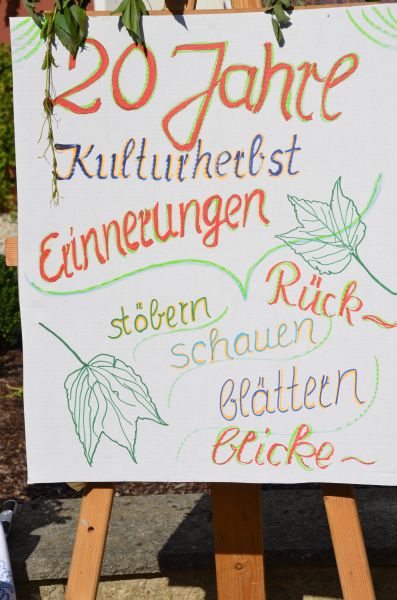 20 Jahre
Kulturherbst
Erinnerungen
Rück~
stöbern
schauen
blättern
blicke~